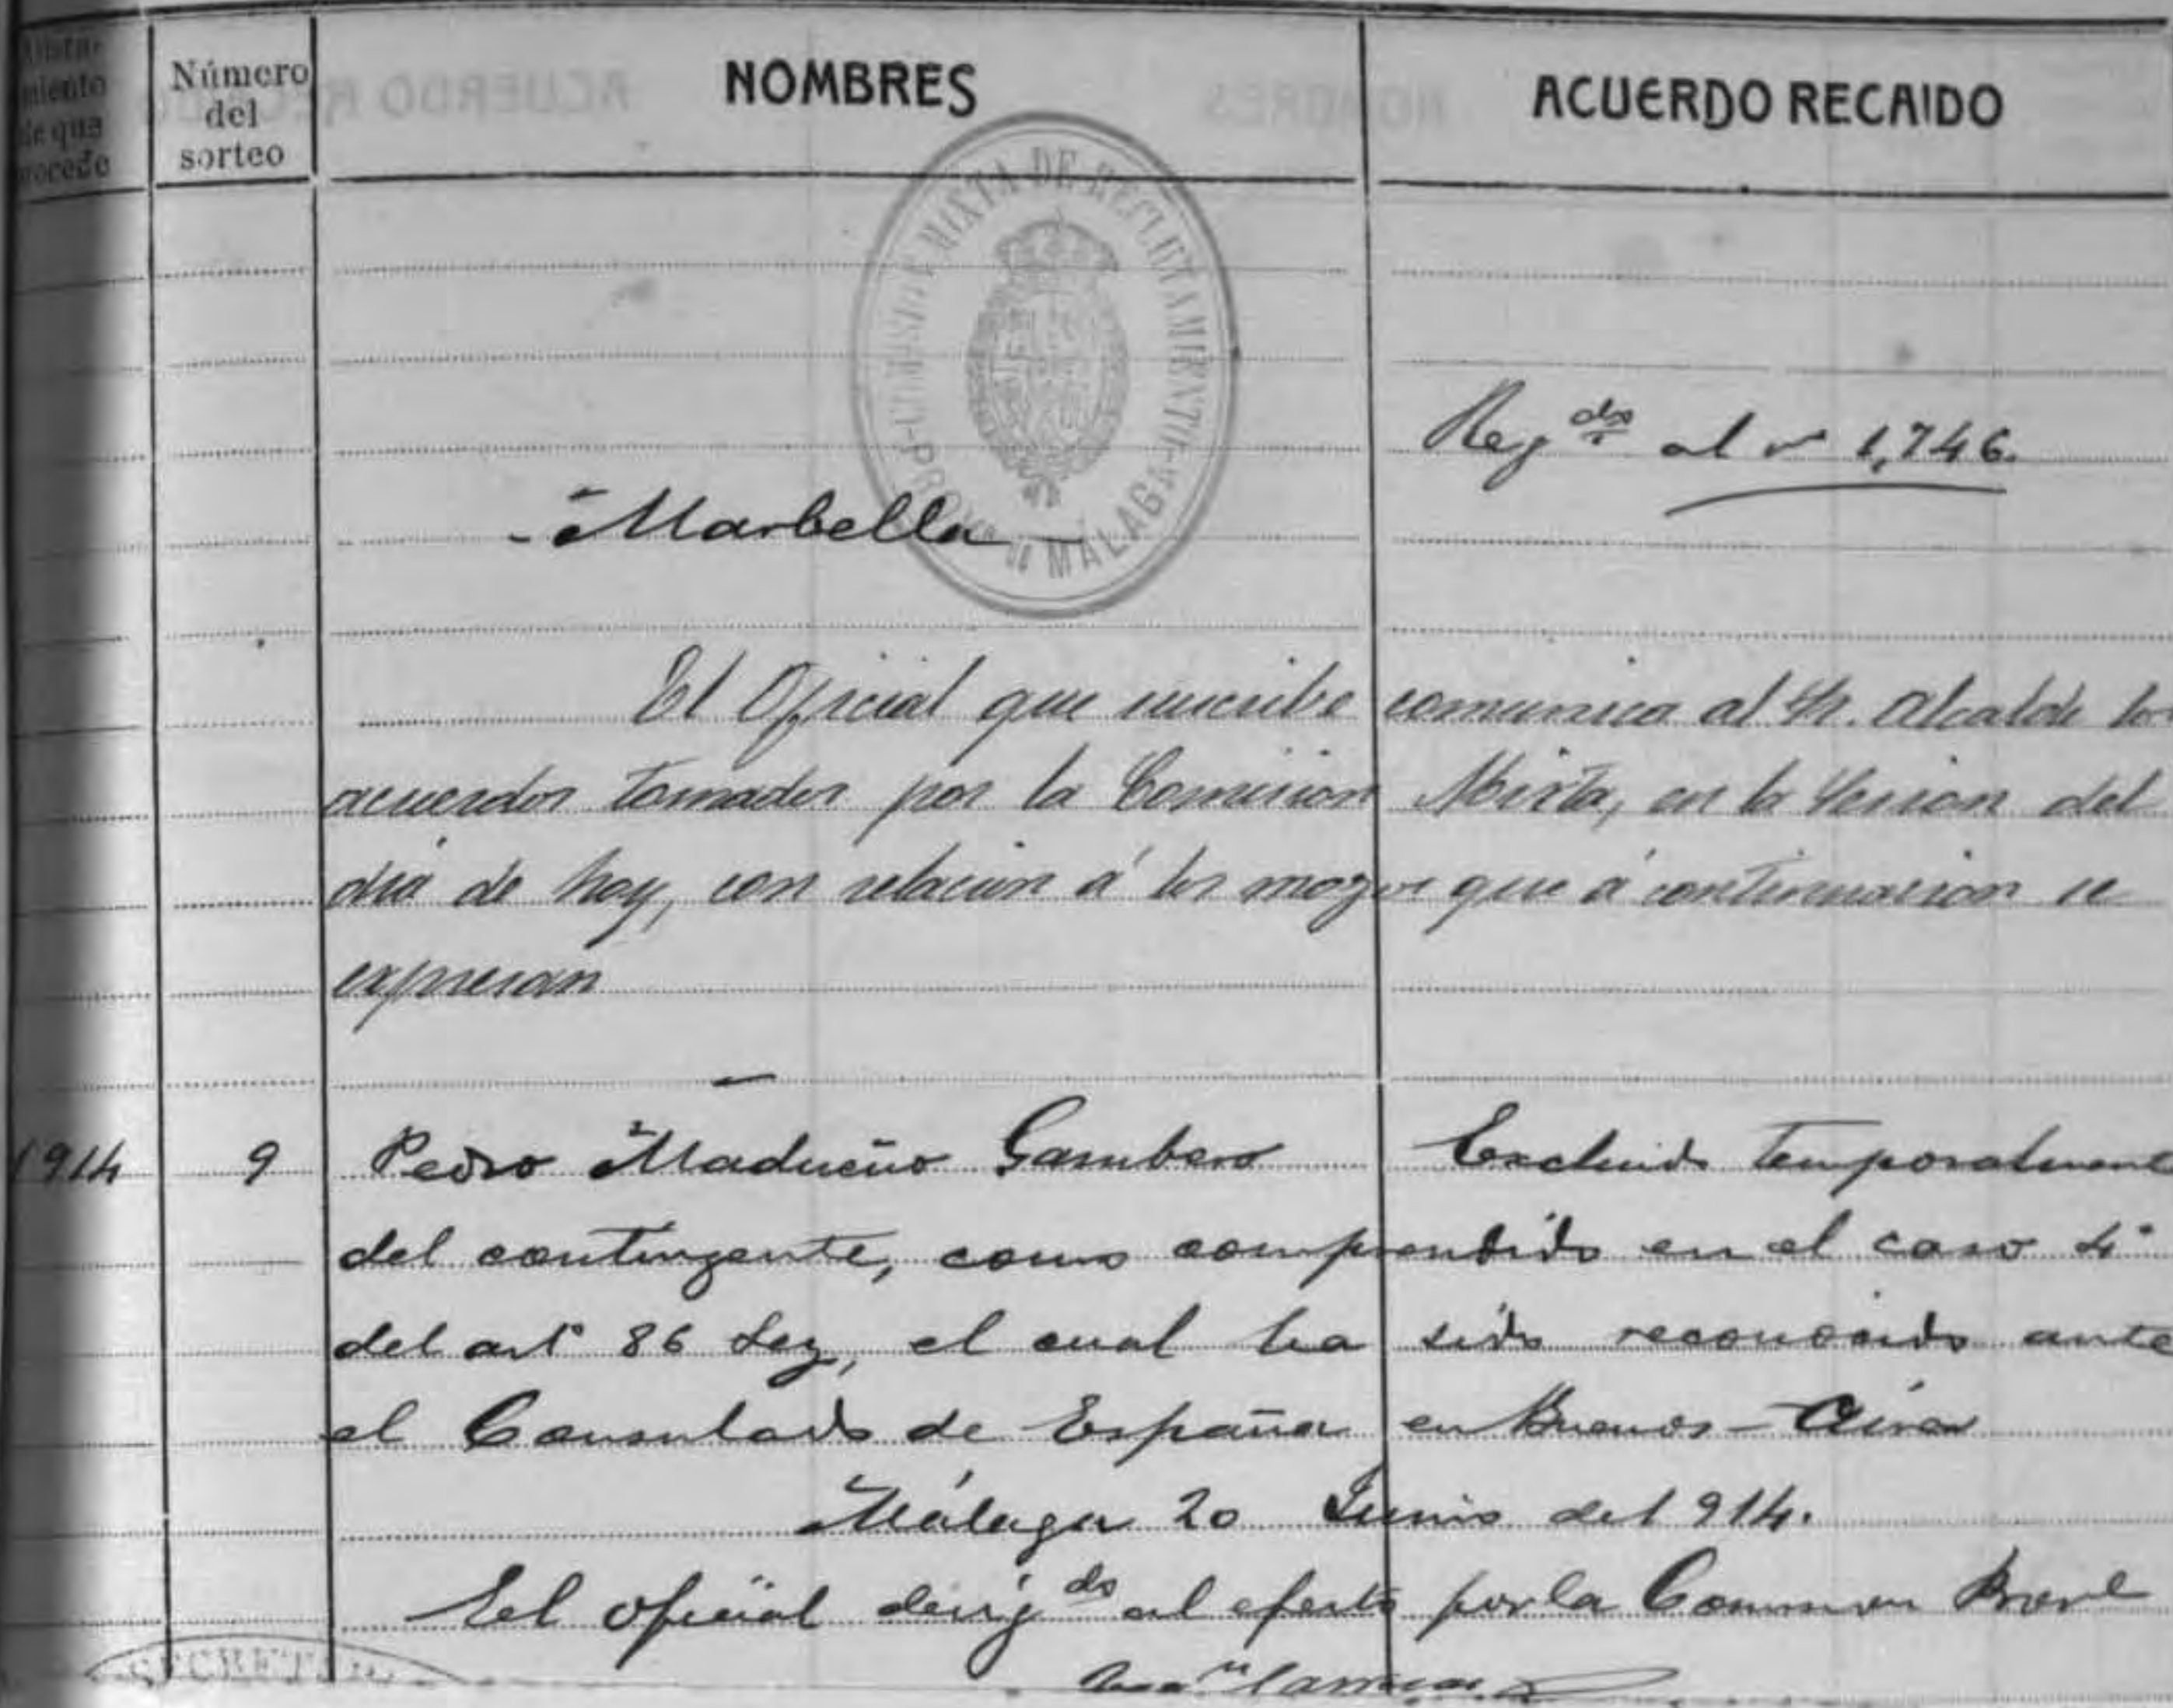 Número
del
sorteo
NOMBRES
ACUERDO RECAIDO
miento
de que
procede
COMISION MIXTA DE RECLUTAMIENTO
MÁLAGA
Reg.do al nº 1,746.
- Marbella -
El Oficial que suscribe comunica al Sr. Alcalde los
acuerdos tomados por la Comision Mixta, en la Sesion del
dia de hoy, con relacion á los mozos que á continuacion se
expresan
1914 9 Pedro Madueño Gambero Excluido temporalmente
del contingente, como comprendido en el caso 4º
del artº 86 Ley, el cual ha sido reconocido ante
el Consulado de España en Buenos-Aires
Málaga 20 Junio del 914.
El oficial desigdo al efecto por la Comision Provl
SECRETA